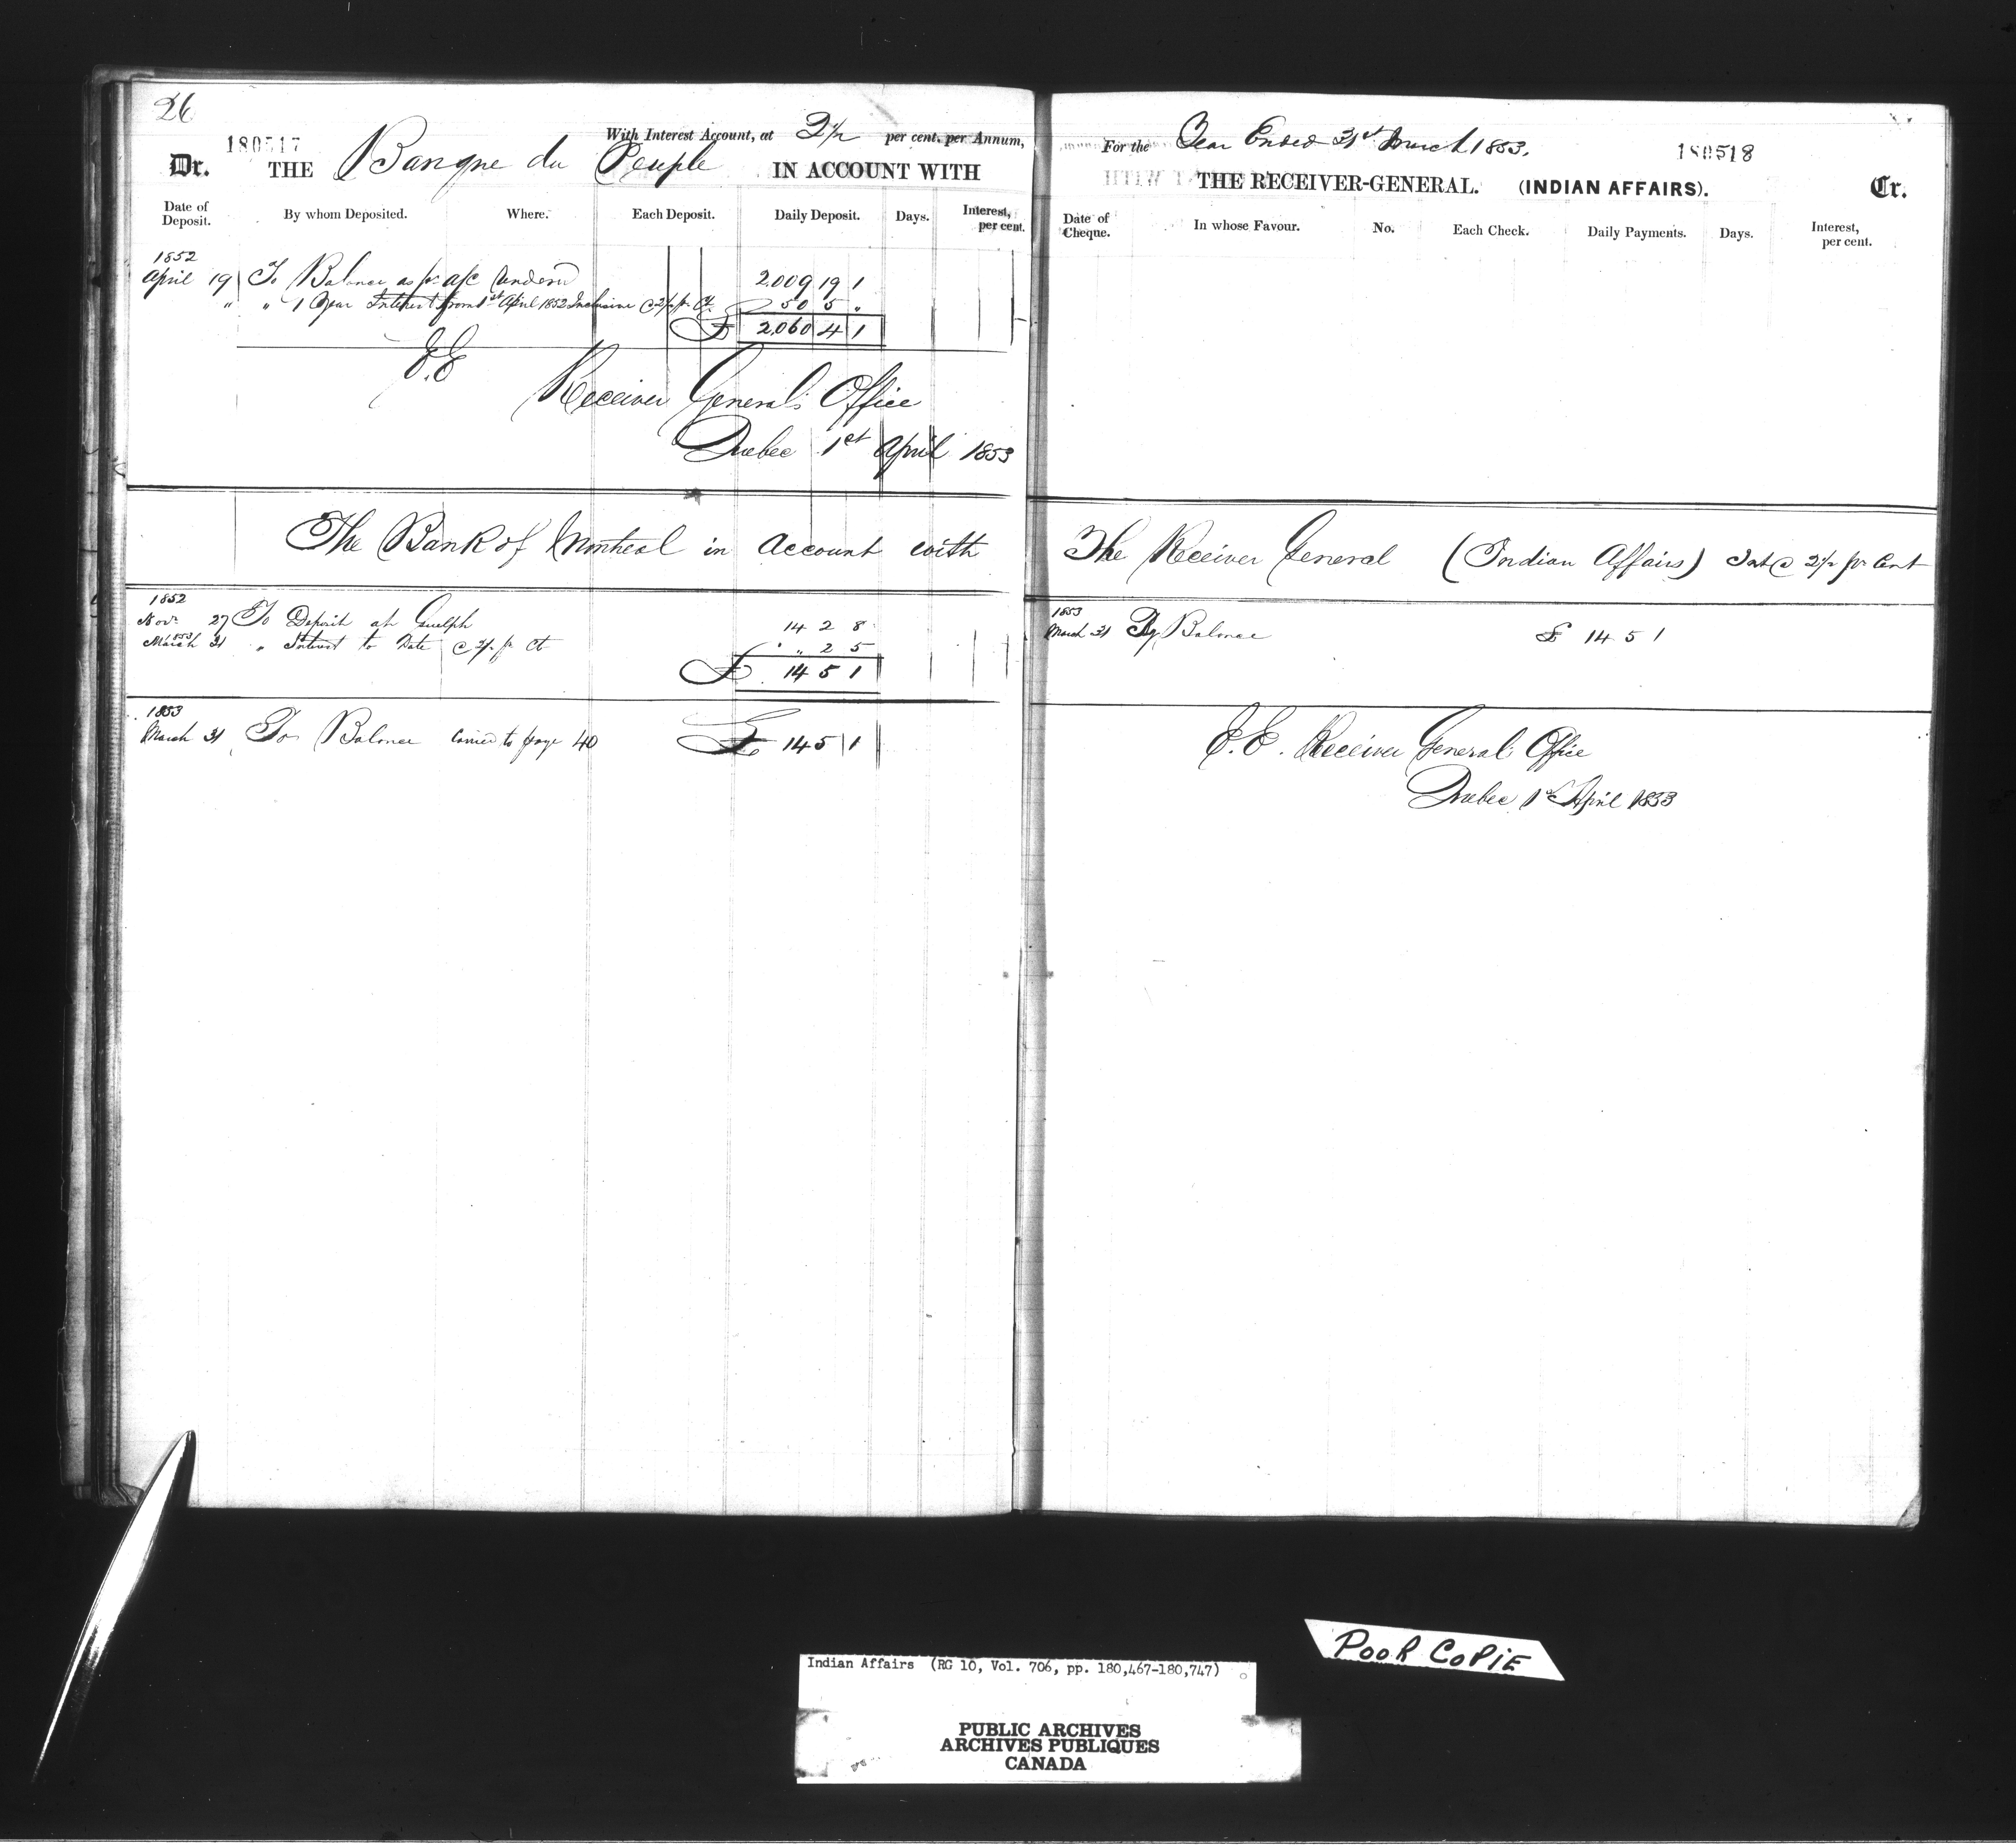 26
180517
With Interest Account, at 2½ per cent. per Annum,
Dr. THE Banque du Peuple IN ACCOUNT WITH
Date of Deposit. By whom Deposited. Where. Each Deposit. Daily Deposit. Days. Interest, per cent.
1852
April 19 To Balance as pr a/c rendered 2.009 19 1
" " 1 Year Interest from 1st April 1852 Inclusive @ 2½ pr Ct. 50 5 "
£ 2.060 4 1
E.E
Receiver General's Office
Quebec 1st April 1853
The Bank of Montreal in account with
1852
Nov. 27 To Deposit at Guelph 14 2 8
1853
March 31 " Interest to Date @ 2½ pr Ct " 2 5
£ 14 5 1
1853
March 31 To Balance Carried to page 40 £ 14 5 1
For the Year Ended 31st March 1853.
180518
THE RECEIVER-GENERAL. (INDIAN AFFAIRS). Cr.
Date of Cheque. In whose Favour. No. Each Check. Daily Payments. Days. Interest, per cent.
The Receiver General (Indian Affairs) Int @ 2½ pr Cent
1853
March 31 By Balance £ 14 5 1
E.E. Receiver General's Office
Quebec 1st April 1853
POOR COPIE
Indian Affairs (RG 10, Vol. 706, pp. 180,467-180,747)
PUBLIC ARCHIVES
ARCHIVES PUBLIQUES
CANADA